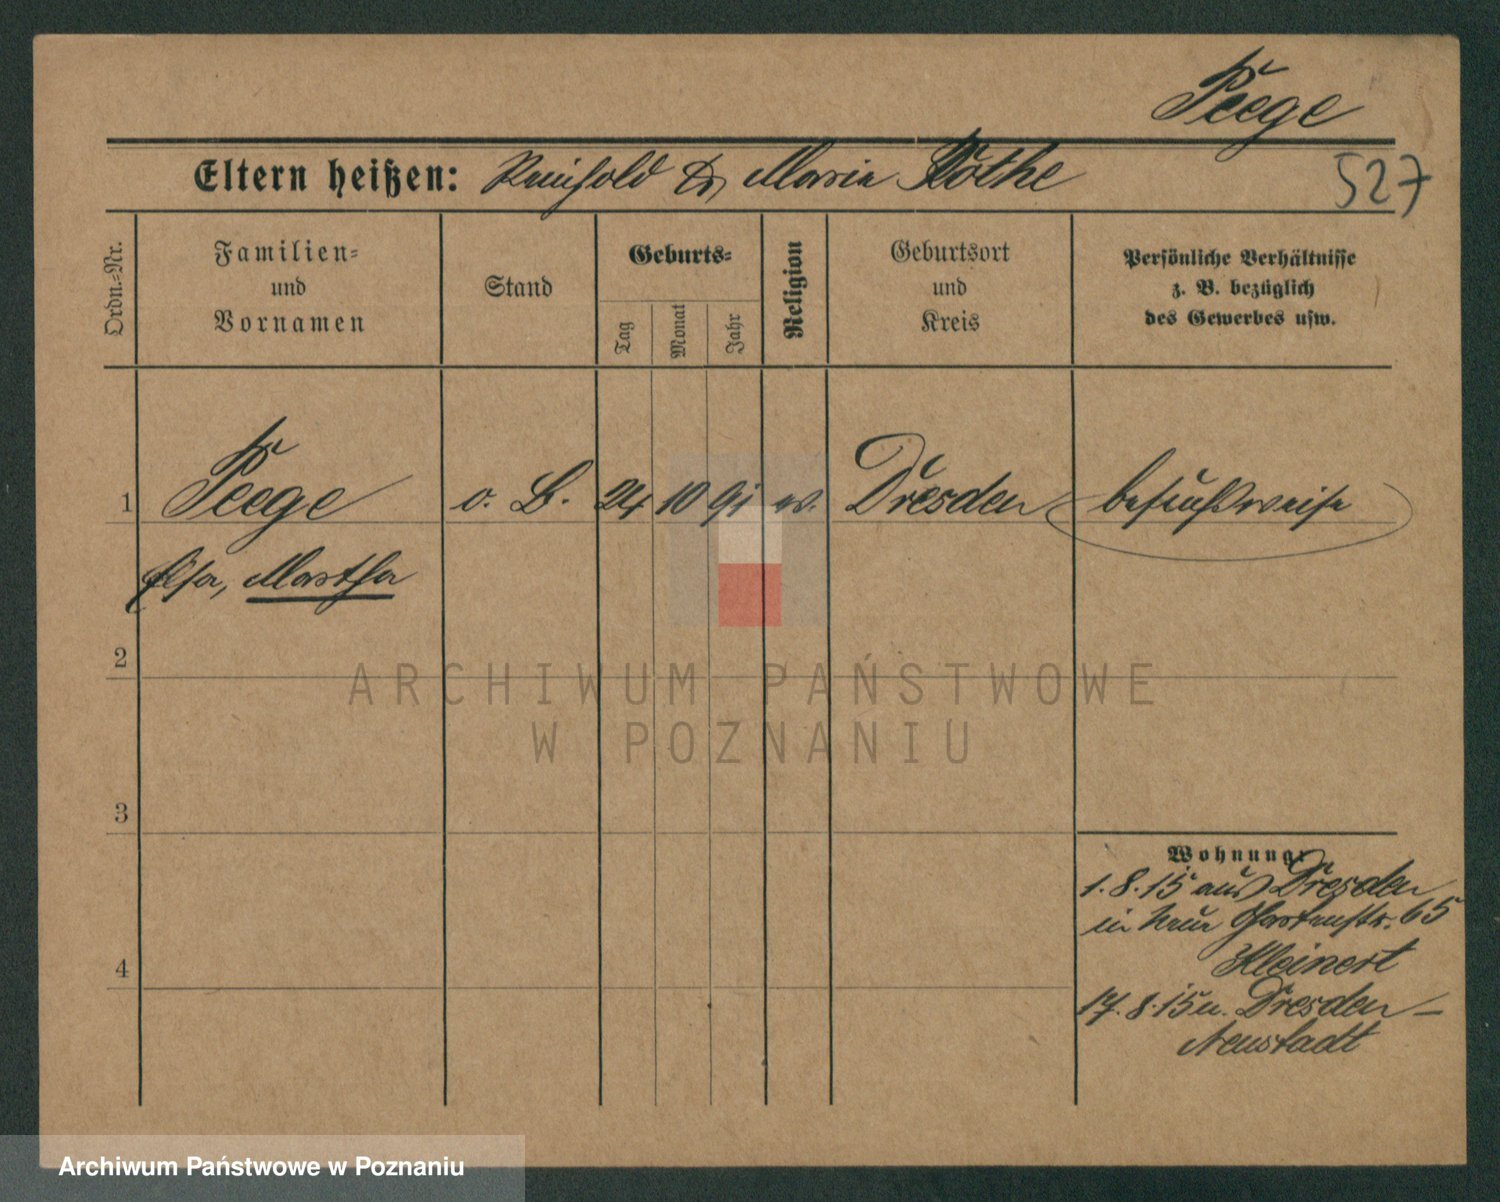 Peege
Eltern heißen: Reinhold & Maria Köthe
527
Ordn.=Nr.
Familien=
und
Vornamen
Stand
Geburts=
Tag
Monat
Jahr
Religion
Geburtsort
und
Kreis
Persönliche Verhältnisse
z. B. bezüglich
des Gewerbes usw.
1 Peege o. B. 24 10 91 ev. Dresden besuchsweise
Elsa, Martha
2
3
4
Wohnung:
1. 8. 15 aus Dresden
in Neue Gartenstr. 65
Kleinert
17. 8. 15 n. Dresden–
Neustadt
ARCHIWUM PAŃSTWOWE
W POZNANIU
Archiwum Państwowe w Poznaniu